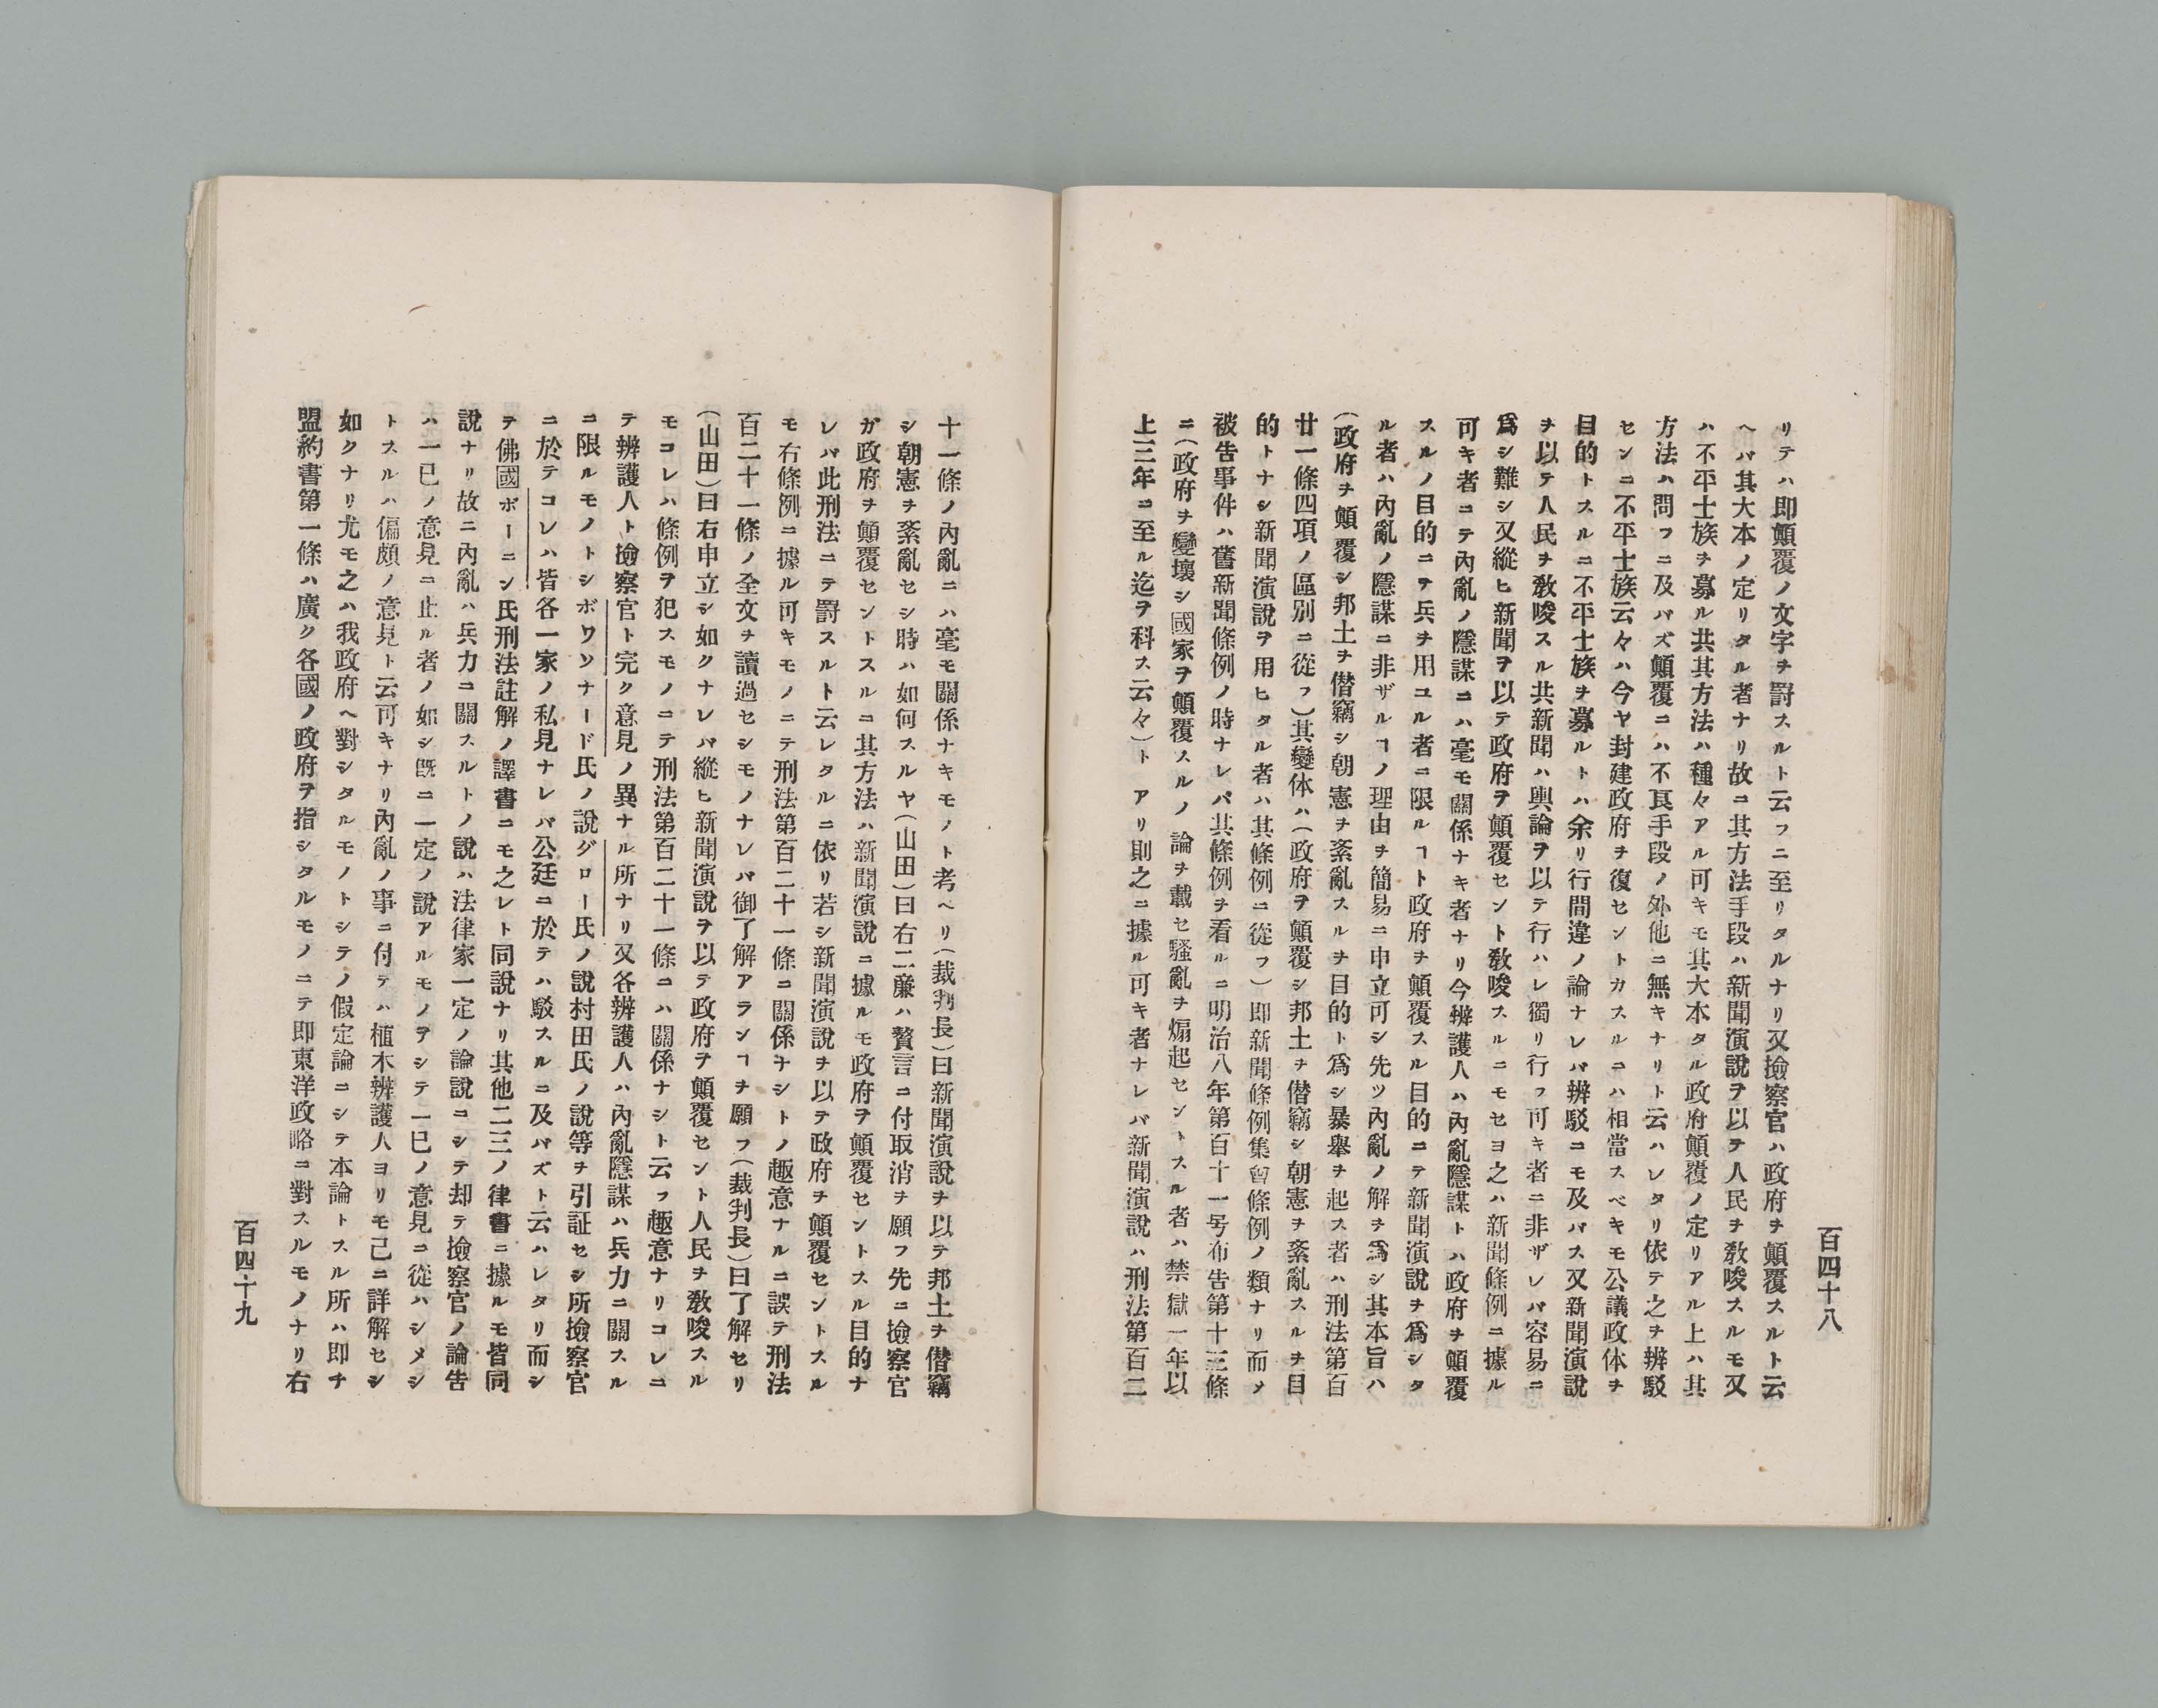 百四十八
リテハ即顛覆ノ文字ヲ罰スルト云フニ至リタルナリ又撿察官ハ政府ヲ顛覆スルト云
ヘバ其大本ノ定リタル者ナリ故ニ其方法手段ハ新聞演說ヲ以テ人民ヲ敎唆スルモ又
ハ不平士族ヲ募ル共其方法ハ種々アル可キモ其大本タル政府顛覆ノ定リアル上ハ其
方法ハ問フニ及バズ顛覆ニハ不良手段ノ外他ニ無キナリト云ハレタリ依テ之ヲ辨駁
センニ不平士族云々ハ今ヤ封建政府ヲ復セントカスルニハ相當スベキモ公議政体ヲ
目的トスルニ不平士族ヲ募ルトハ余リ行間違ノ論ナレバ辨駁ニモ及バス又新聞演說
ヲ以テ人民ヲ敎唆スル共新聞ハ輿論ヲ以テ行ハレ獨リ行フ可キ者ニ非ザレバ容易ニ
爲シ難シ又縱ヒ新聞ヲ以テ政府ヲ顛覆セント敎唆スルニモセヨ之ハ新聞條例ニ據ル
可キ者ニテ內亂ノ隱謀ニハ毫モ關係ナキ者ナリ今辨護人ハ內亂隱謀トハ政府ヲ顛覆
スルノ目的ニテ兵ヲ用ユル者ニ限ルヿト政府ヲ顛覆スル目的ニテ新聞演說ヲ爲シタ
ル者ハ內亂ノ隱謀ニ非ザルヿノ理由ヲ簡易ニ申立可シ先ツ內亂ノ解ヲ爲シ其本旨ハ
(政府ヲ顛覆シ邦土ヲ僣竊シ朝憲ヲ紊亂スルヲ目的ト爲シ暴舉ヲ起ス者ハ刑法第百
廿一條四項ノ區別ニ從フ)其變体ハ(政府ヲ顛覆シ邦土ヲ僣竊シ朝憲ヲ紊亂スルヲ目
的トナシ新聞演說ヲ用ヒタル者ハ其條例ニ從フ)即新聞條例集會條例ノ類ナリ而メ
被告事件ハ舊新聞條例ノ時ナレバ其條例ヲ看ルニ明治八年第百十一号布告第十三條
ニ(政府ヲ變壞シ國家ヲ顛覆スルノ論ヲ載セ騷亂ヲ煽起セントスル者ハ禁獄一年以
上三年ニ至ル迄ヲ科ス云々)トアリ則之ニ據ル可キ者ナレバ新聞演說ハ刑法第百二
十一條ノ內亂ニハ毫モ關係ナキモノト考ヘリ(裁判長)曰新聞演說ヲ以テ邦土ヲ僣竊
シ朝憲ヲ紊亂セシ時ハ如何スルヤ(山田)曰右二廉ハ贅言ニ付取消ヲ願フ先ニ撿察官
ガ政府ヲ顛覆セントスルニ其方法ハ新聞演說ニ據ルモ政府ヲ顛覆セントスル目的ナ
レバ此刑法ニテ罰スルト云レタルニ依リ若シ新聞演說ヲ以テ政府ヲ顛覆セントスル
モ右條例ニ據ル可キモノニテ刑法第百二十一條ニ關係ナシトノ趣意ナルニ誤テ刑法
百二十一條ノ全文ヲ讀過セシモノナレバ御了解アランヿヲ願フ(裁判長)曰了解セリ
(山田)曰右申立シ如クナレバ縱ヒ新聞演說ヲ以テ政府ヲ顛覆セント人民ヲ敎唆スル
モコレハ條例ヲ犯スモノニテ刑法第百二十一條ニハ關係ナシト云フ趣意ナリコレニ
テ辨護人ト撿察官ト完ク意見ノ異ナル所ナリ又各辨護人ハ內亂隱謀ハ兵力ニ關スル
ニ限ルモノトシボワソナード氏ノ說グロー氏ノ說村田氏ノ說等ヲ引証セシ所撿察官
ニ於テコレハ皆各一家ノ私見ナレバ公廷ニ於テハ駁スルニ及バズト云ハレタリ而シ
テ佛國ボーニン氏刑法註解ノ譯書ニモ之レト同說ナリ其他二三ノ律書ニ據ルモ皆同
說ナリ故ニ內亂ハ兵力ニ關スルトノ說ハ法律家一定ノ論說ニシテ却テ撿察官ノ論告
ハ一已ノ意見ニ止ル者ノ如シ旣ニ一定ノ說アルモノヲシテ一已ノ意見ニ從ハシメシ
トスルハ偏頗ノ意見ト云可キナリ內亂ノ事ニ付テハ植木辨護人ヨリモ己ニ詳解セシ
如クナリ尤モ之ハ我政府ヘ對シタルモノトシテノ假定論ニシテ本論トスル所ハ即チ
盟約書第一條ハ廣ク各國ノ政府ヲ指シタルモノニテ即東洋政略ニ對スルモノナリ右
百四十九